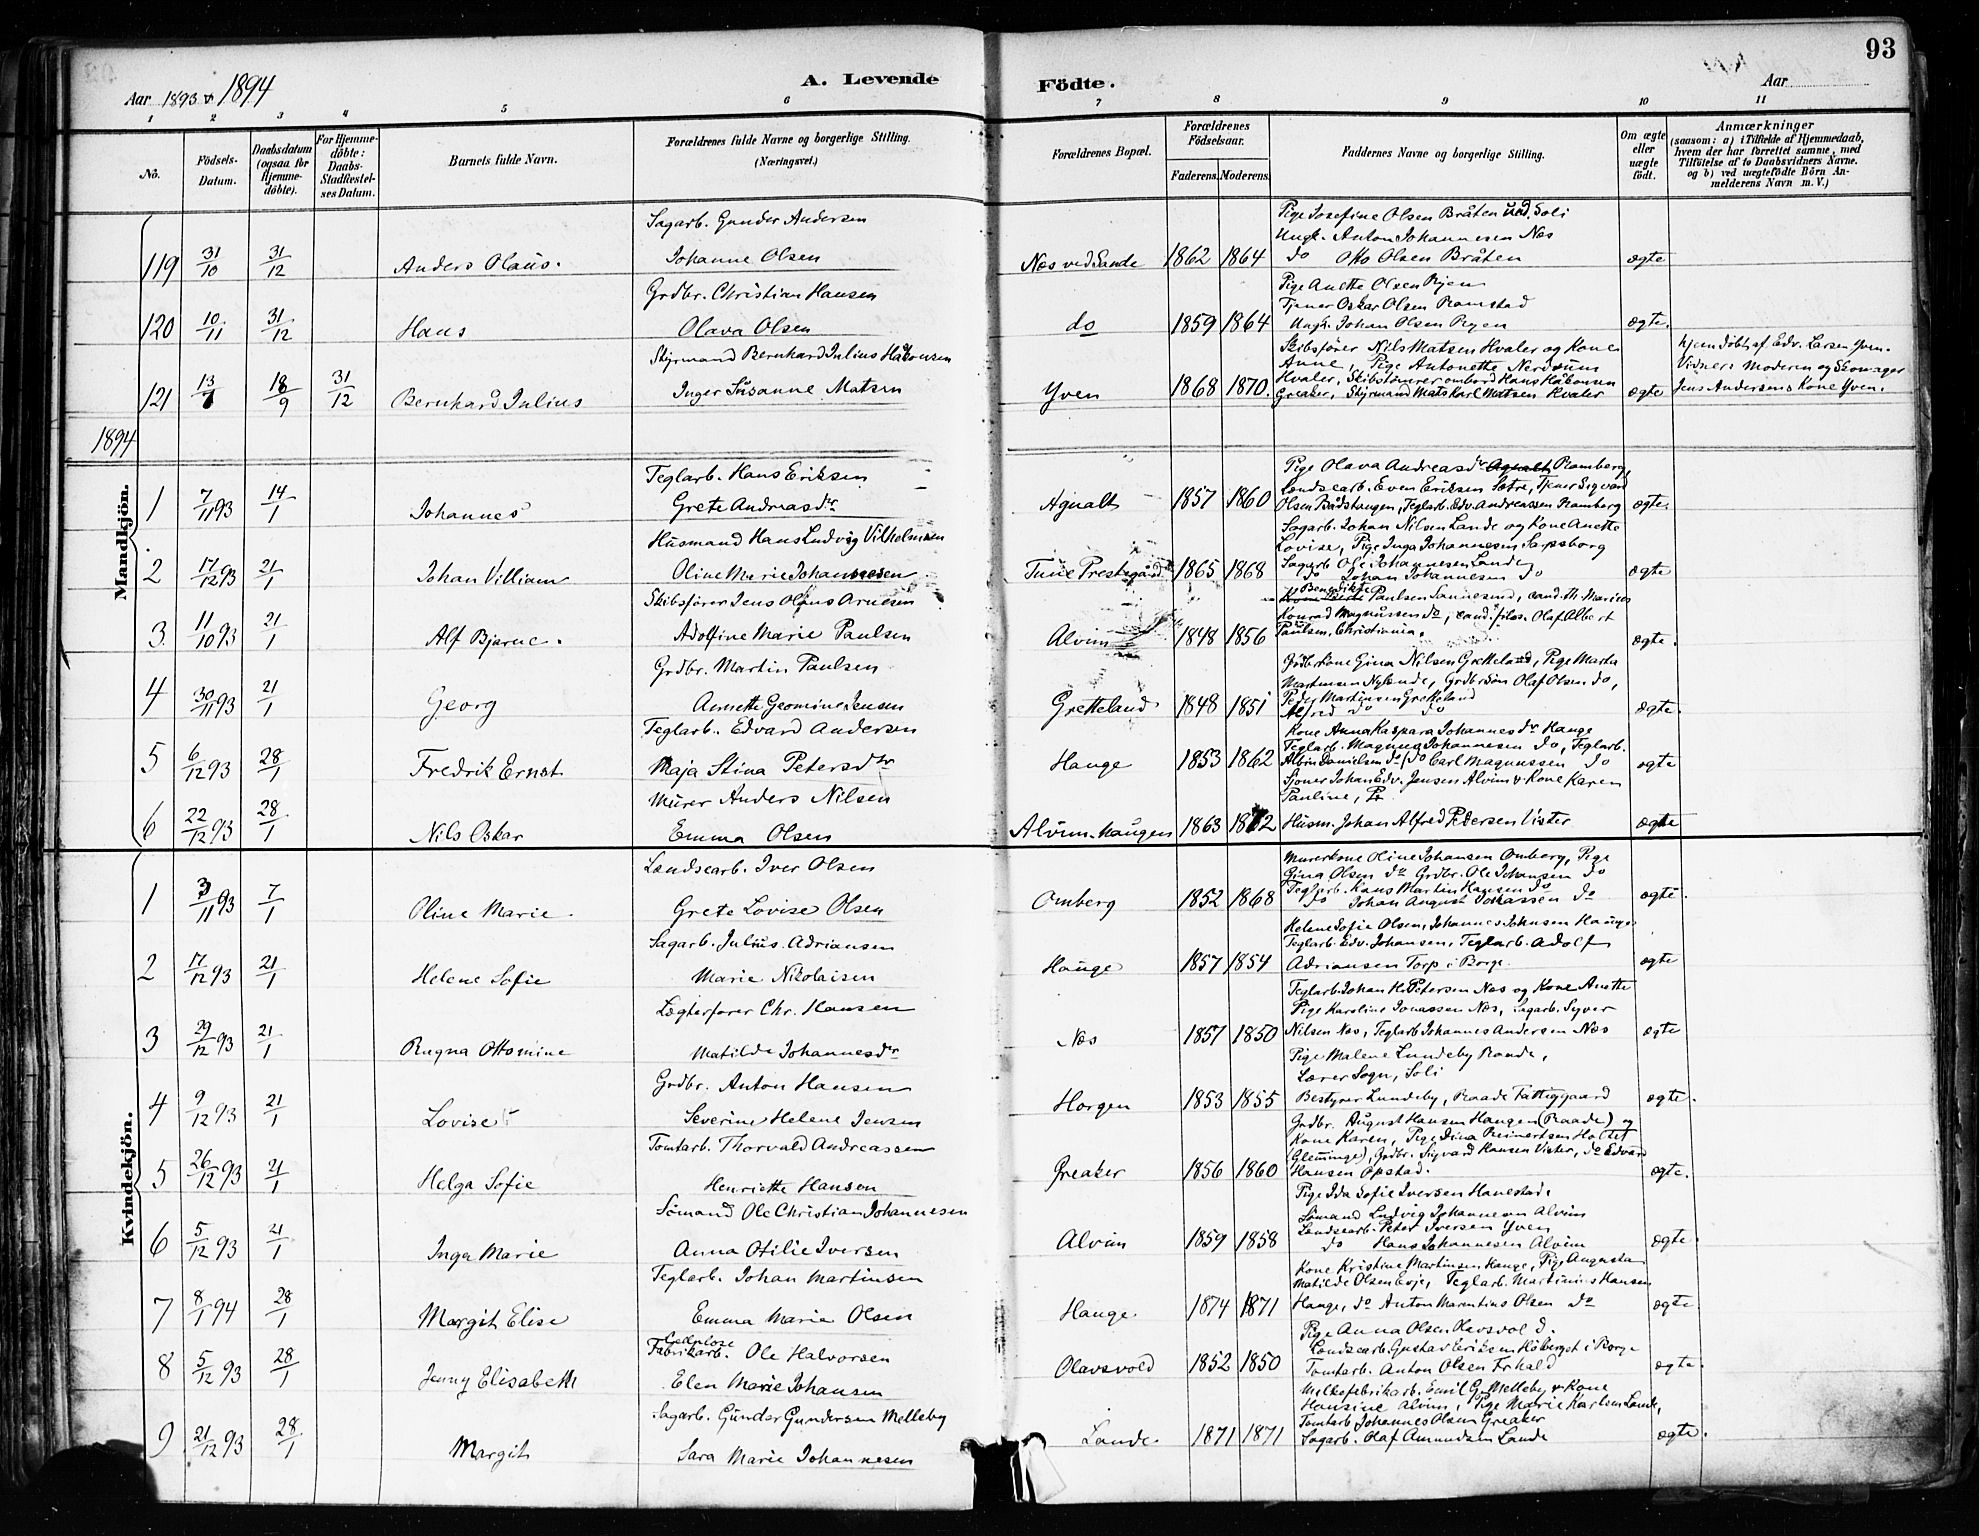 93
Aar 1893 & 1894
A. Levende Födte.
Aar
1 2 3 4 5 6 7 8 9 10 11
No.
Födsels-Datum.
Daabsdatum (ogsaa for Hjemme-döbte).
For Hjemme-döbte: Daabs-Stadfæstel-ses Datum.
Barnets fulde Navn.
Forældrenes fulde Navne og borgerlige Stilling. (Næringsvei.)
Forældrenes Bopæl.
Forældrenes Fødselsaar.
Faderens. Moderens.
Faddernes Navne og borgerlige Stilling.
Om ægte eller uægte født.
Anmærkninger
(saasom: a) i Tilfælde af Hjemmedaab, hvem der har forrettet samme, med Tilföielse af to Daabsvidners Navne. og b) ved uægtefödte Börn An-melderens Navn m. V.)
Sagarb. Gunder Andersen
Pige Josefine Olsen Bråten ved Soli
Ungk. Anton Johannesen Næs
119 31/10 31/12 Anders Olaus. Johanne Olsen Næs ved Sande 1862 1864 do Otto Olsen Bråten ægte
Grdbr. Christian Hansen
Pige Anette Olsen Ryen
Tjener Oskar Olsen Ramstad
120 10/11 31/12 Hans Olava Olsen do 1859 1864 Ungk. Johan Olsen Ryen ægte.
Styrmand Bernhard Julius Håkonsen
Skibsfører Nils Matsen Hvaler og Kone
Anne, Pige Antonette Nersøum
121 18/9 31/12 Bernhard Julius Inger Susanne Matsen Yven 1868 1870. Hvaler, Hans Håkonsen
Greaker, Styrmand Mats Karl Matsen Hvaler ægte
hjemdöbt af Edv. Larsen Yven.
Vidner: Moderen og Skomager
Jens Andersens Kone Yven.
1894
Mandkjön.
Teglarb. Hans Eriksen
Pige Olava Andreasdr Agnalt Ramberg,
1 7/11 93 14/1 Johannes Grete Andreasdr Agnalt 1857 1860 Landsearb. Even Eriksen Sætre, Tjener Sigvard
Olsen Badstangen, Teglarb. Edv. Andreassen Ramberg ægte.
Husmand Hans Ludvig Vilhelmsen
Sagarb. Johan Nilsen Lande og Kone Anette
Lovise, Pige Inga Johannesen Sapsborg
2 17/12 93 21/1 Johan Villiam Oline Marie Johannesen Tune Prestegård 1865 1868 Sagarb Ole Johannesen Lande
do Johan Johannesen do ægte
Skibsfører Jens Olaus Arnesen
Benedikte Paulsen Sannesund, cand. th. Marius
Konrad Magnussen do, cand. filos. Olaf Albert
3. 11/10 93 21/1 Alf Bjarne. Adolfine Marie Paulsen Alvim 1848 1856 Paulsen, Christiania. ægte.
Grdbr. Martin Paulsen
Grdbrkone Gina Nilsen Gretteland, Pige Marta
Martinsen Nylende, Grdbrsön Olaf Olsen do,
4 30/11 93 21/1 Georg Annette Geomine Jensen Gretteland 1848 1851 Peder Martinsen Gretteland
Alfred do do ægte.
Teglarb. Edvard Andersen
Kone Anna Kaspara Johannesdr Hauge
Teglarb. Magnus Johannesen do, Teglarb.
5 6/12 93 28/1 Fredrik Ernst Maja Stina Petersdtr Hauge 1853 1862 Albin Danielsen do, do Carl Magnussen do ægte
Murer Anders Nilsen
Johan Edv. Jensen Alvim & Kone Karen
Pauline,
6 22/12 93 28/1 Nils Oskar Emma Olsen Alvim-haugen 1863 1872 Husm. Johan Alfred Pedersen Vister ægte
Kvindekjön.
Landsearb. Iver Olsen
Murerkone Oline Johansen Omberg, Pige
Gina Olsen do Grdbr. Ole Johansen do
1 3/11 93 7/1 Oline Marie Grete Lovise Olsen Omberg 1852 1868 Teglarb. Hans Martin Hansen do
do Johan August Johassen do ægte.
Sagarb. Julius Adriansen
Helene Sofie Olsen, Johannes Johnsen Hauge
Teglarb. Edv. Johansen, Teglarb. Adolf
2 17/12 93 21/1 Helene Sofie Marie Nikolaisen Hauge 1857 1854 Adriansen Torp i Borge. ægte
Lægterfører Chr. Hansen
Teglarb. Johan H. Petersen Næs og Kone Anette
Pige Karoline Jonassen Næs, Sagarb. Syver
3 29/12 93 21/1 Ragna Ottomine Matilde Johannesdr Næs 1857 1850 Nilsen Næs, Teglarb Johannes Andersen Næs ægte
Grdbr. Anton Hansen
Pige Malene Lundeby Raade,
Lærer Sogn, Soli
4 9/12 93 21/1 Lovise Severine Helene Jensen Horgen 1853 1855 Bestyrer Lundeby, Raade Fattiggaard ægte.
Tomtarb. Thorvald Andreassen
Grdbr. August Hansen Haugen (Raade) og
Kone Karen, Pige Dina Reinertsen Holtet
5 26/12 93 21/1 Helga Sofie Henriette Hansen Greaker 1856 1860 (Glemminge), Grdbr. Sigvard Hansen Vister, do Edvard
Hansen Opstad. ægte.
Sömand Ole Christian Johannesen
Pige Ida Sofie Iversen Hanestad.
Sömand Ludvig Johannesen Alvim
6 5/12 93 21/1 Inga Marie Anna Otilie Iversen Alvim 1859 1858 Landsearb. Peter Iversen Yven
do Hans Johannesen Alvim ægte.
Teglarb. Johan Martinsen
Kone Kristine Martinsen Hauge, Pige Augusta
Matilde Olsen Evje, Teglarb. Martinius Hansen
7 8/1 94 28/1 Margit Elise Emma Marie Olsen Hauge 1874 1871 Hauge, do Anton Marentius Olsen do ægte
Cellulose
Fabrikarb. Ole Halvorsen
Pige Anna Olsen Olavsvold.
Landsearb. Gustav Eriksen Höberget i Borge
8 5/12 93 28/1 Jenny Elisabeth Elen Marie Johansen Olavsvold 1852 1850 Tomtarb. Anton Olsen Ethald ægte
Sagarb. Gunder Gundersen Melleby
Melkefabrikarb. Emil G. Melleby & Kone
Hansine Alvim, Pige Marie Karlsen Lande,
9 21/12 93 28/1 Margit Sara Marie Johannesen Lande 1871 1871 Tomtarb Johannes Olsen Greaker
Sagarb. Olaf Amundsen Lande ægte.